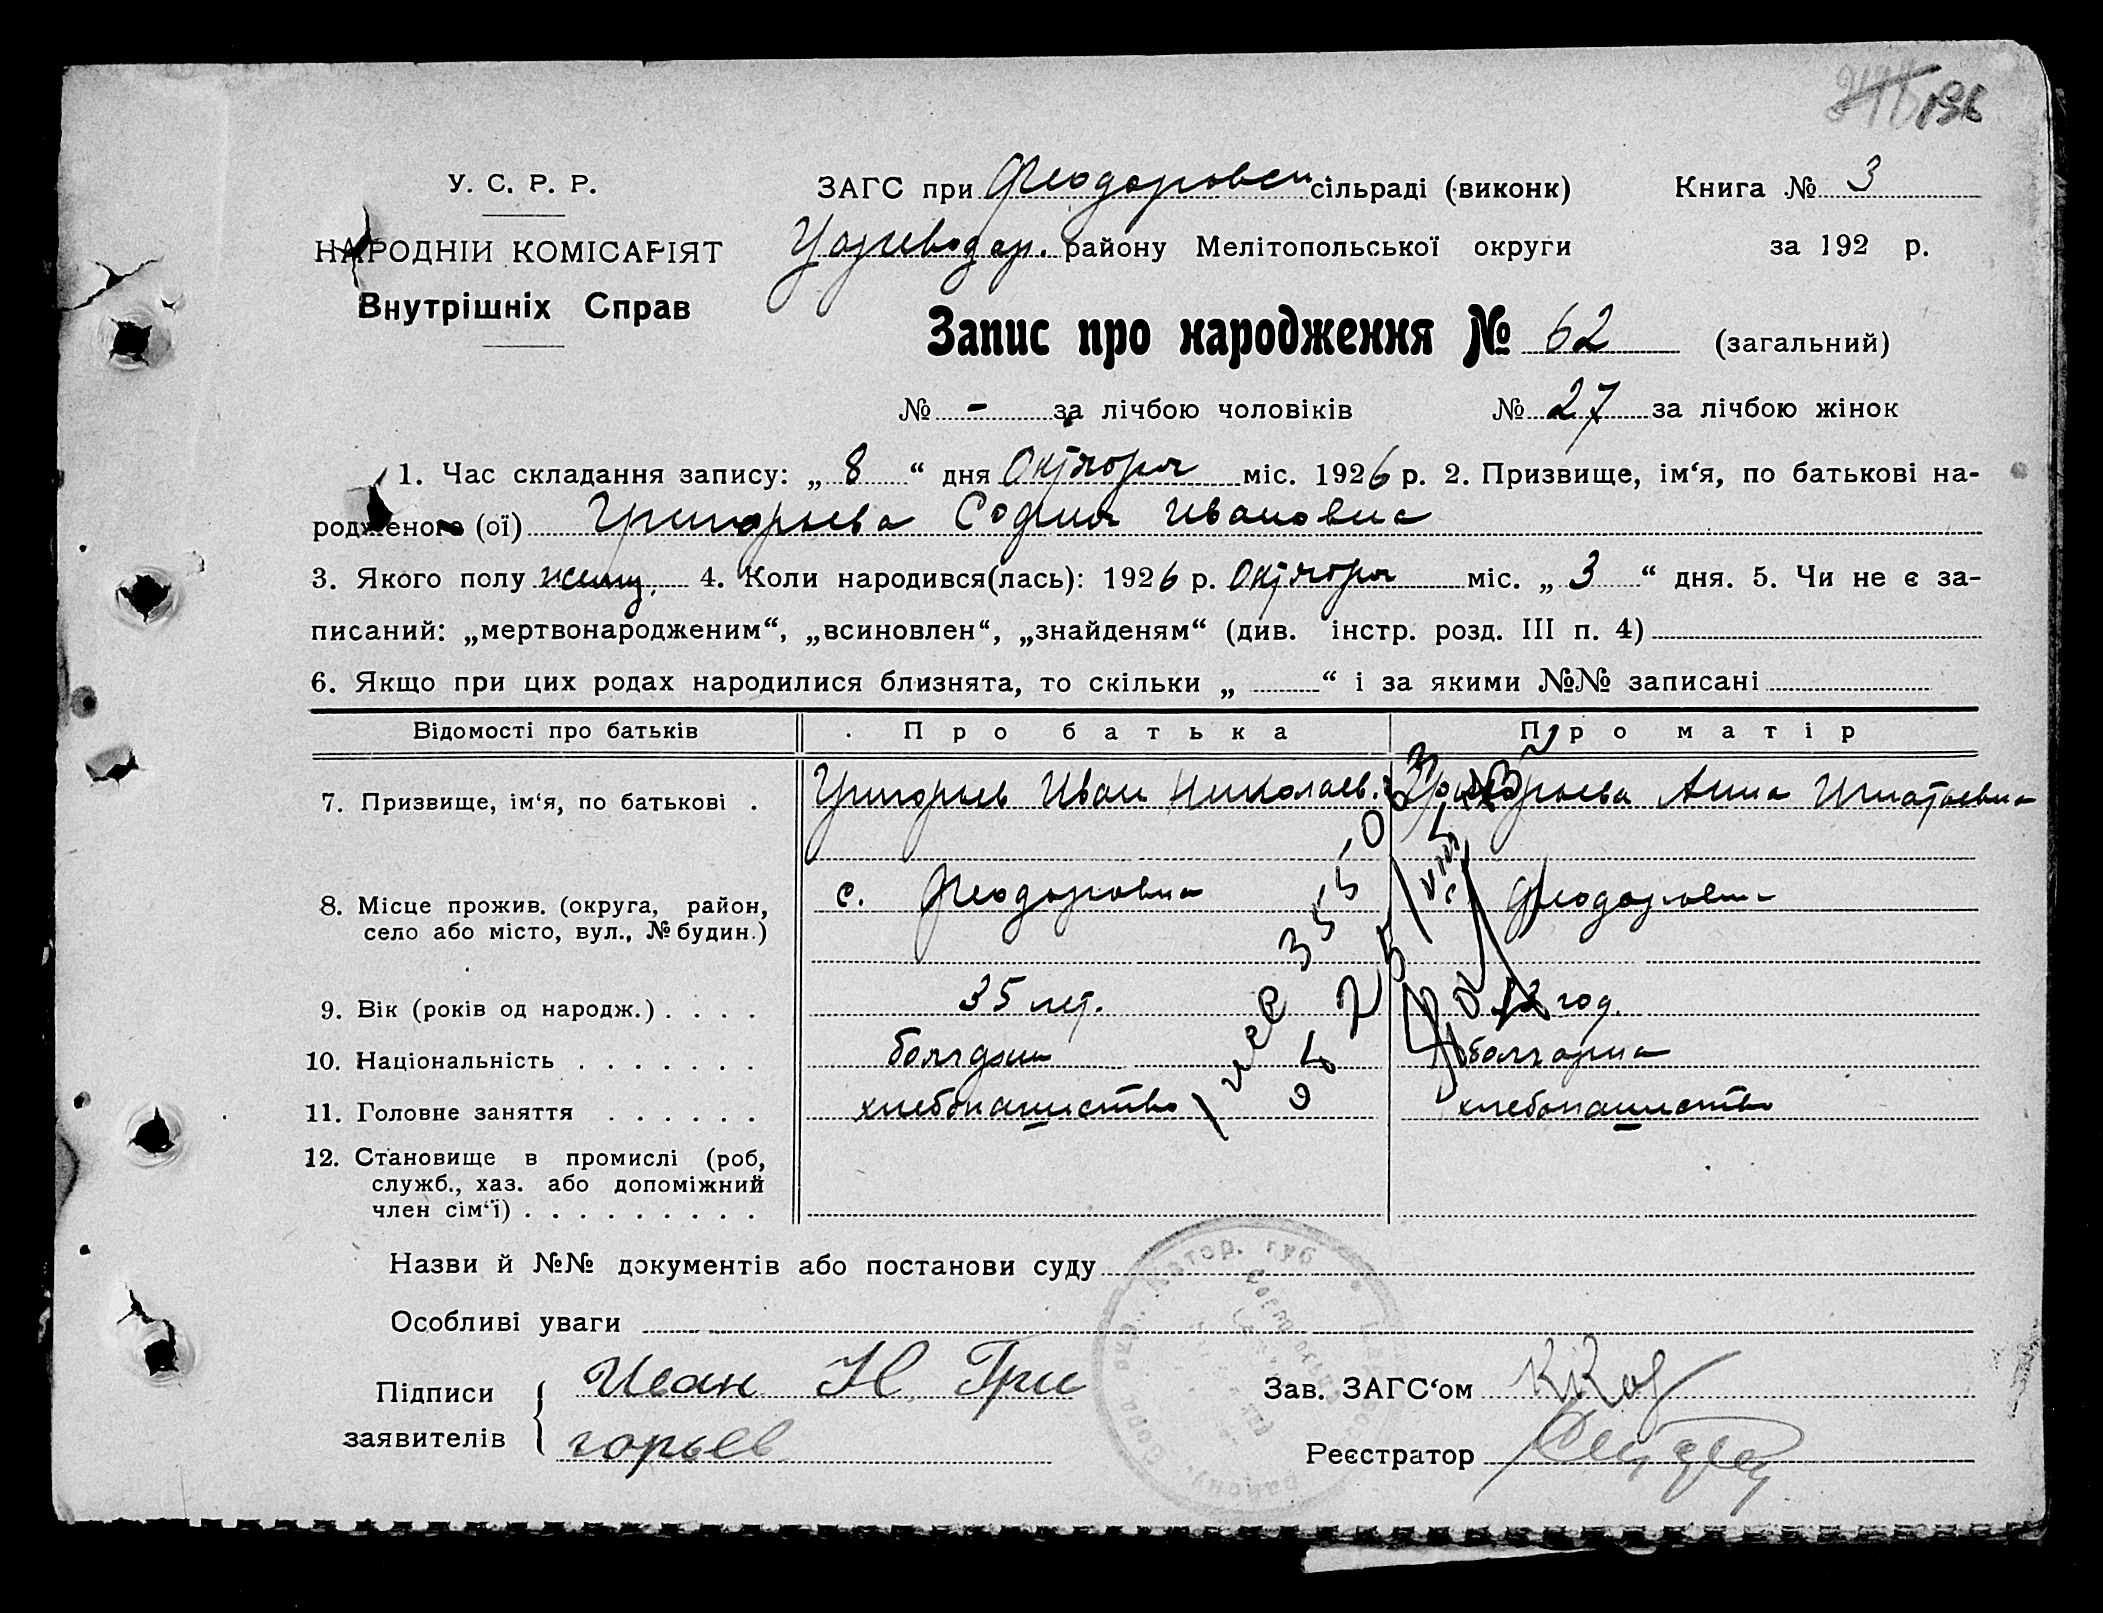 196
У. С. Р. Р.
ЗАГС при Феодоровск сільраді (виконк)
Книга № 3
НАРОДНІЙ КОМІСАРІЯТ
Цареводар. району Мелітопольської округи
за 192 р.
Внутрішніх Справ
Запис про народження № 62 (загальний)
№ - за лічбою чоловіків № 27 за лічбою жінок
1. Час складання запису: „ 8 “ дня Октября міс. 1926 р. 2. Призвище, ім‘я, по батькові на-
родженого (ої) Григорьева София Ивановна
3. Якого полу женц. 4. Коли народився(лась): 1926 р. Октября міс. „ 3 “ дня. 5. Чи не є за-
писаний: „мертвонародженим“, „всиновлен“, „знайденям“ (див. інстр. розд. III п. 4)
6. Якщо при цих родах народилися близнята, то скільки „ “ і за якими №№ записані
Відомості про батьків Про батька Про матір
7. Призвище, ім‘я, по батькові . Григорьев Иван Николаев. Григорьева Анна Игнатьевна
8. Місце прожив. (округа, район, с. Феодоровка с. Феодоровка
село або місто, вул., № будин.)
9. Вік (років од народж.) . . . . 35 лет. год.
10. Національність . . . . . . . болгарин болгарка
11. Головне заняття . . . . . . хлебопашество хлебопашество
12. Становище в промислі (роб,
служб., хаз. або допоміжний
член сім‘ї) . . . . . . . . .
Назви й №№ документів або постанови суду
Особливі уваги
Підписи Иван Н Гри
заявителів горьев
Зав. ЗАГС‘ом
Реєстратор